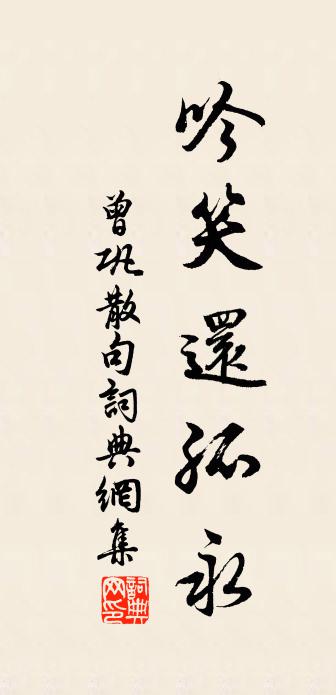 吟笑還孤永
曾巩散句詞典網集
詞典网印